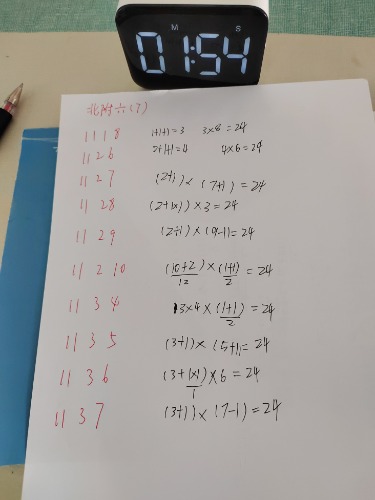 M S
01:54
北附六(7)
1 1 1 8 1+1+1=3 3×8=24
1 1 2 6 2+1+1=4 4×6=24
1 1 2 7 (2+1)×(7+1)=24
1 1 2 8 (2+1×1)×3=24
1 1 2 9 (2+1)×(9-1)=24
1 1 2 10 (10+2)×(1+1)=24
12 2
1 1 3 4 3×4×(1+1)=24
2
1 1 3 5 (3+1)×(5+1)=24
1 1 3 6 (3+1×1)×6=24
1
1 1 3 7 (3+1)×(7-1)=24